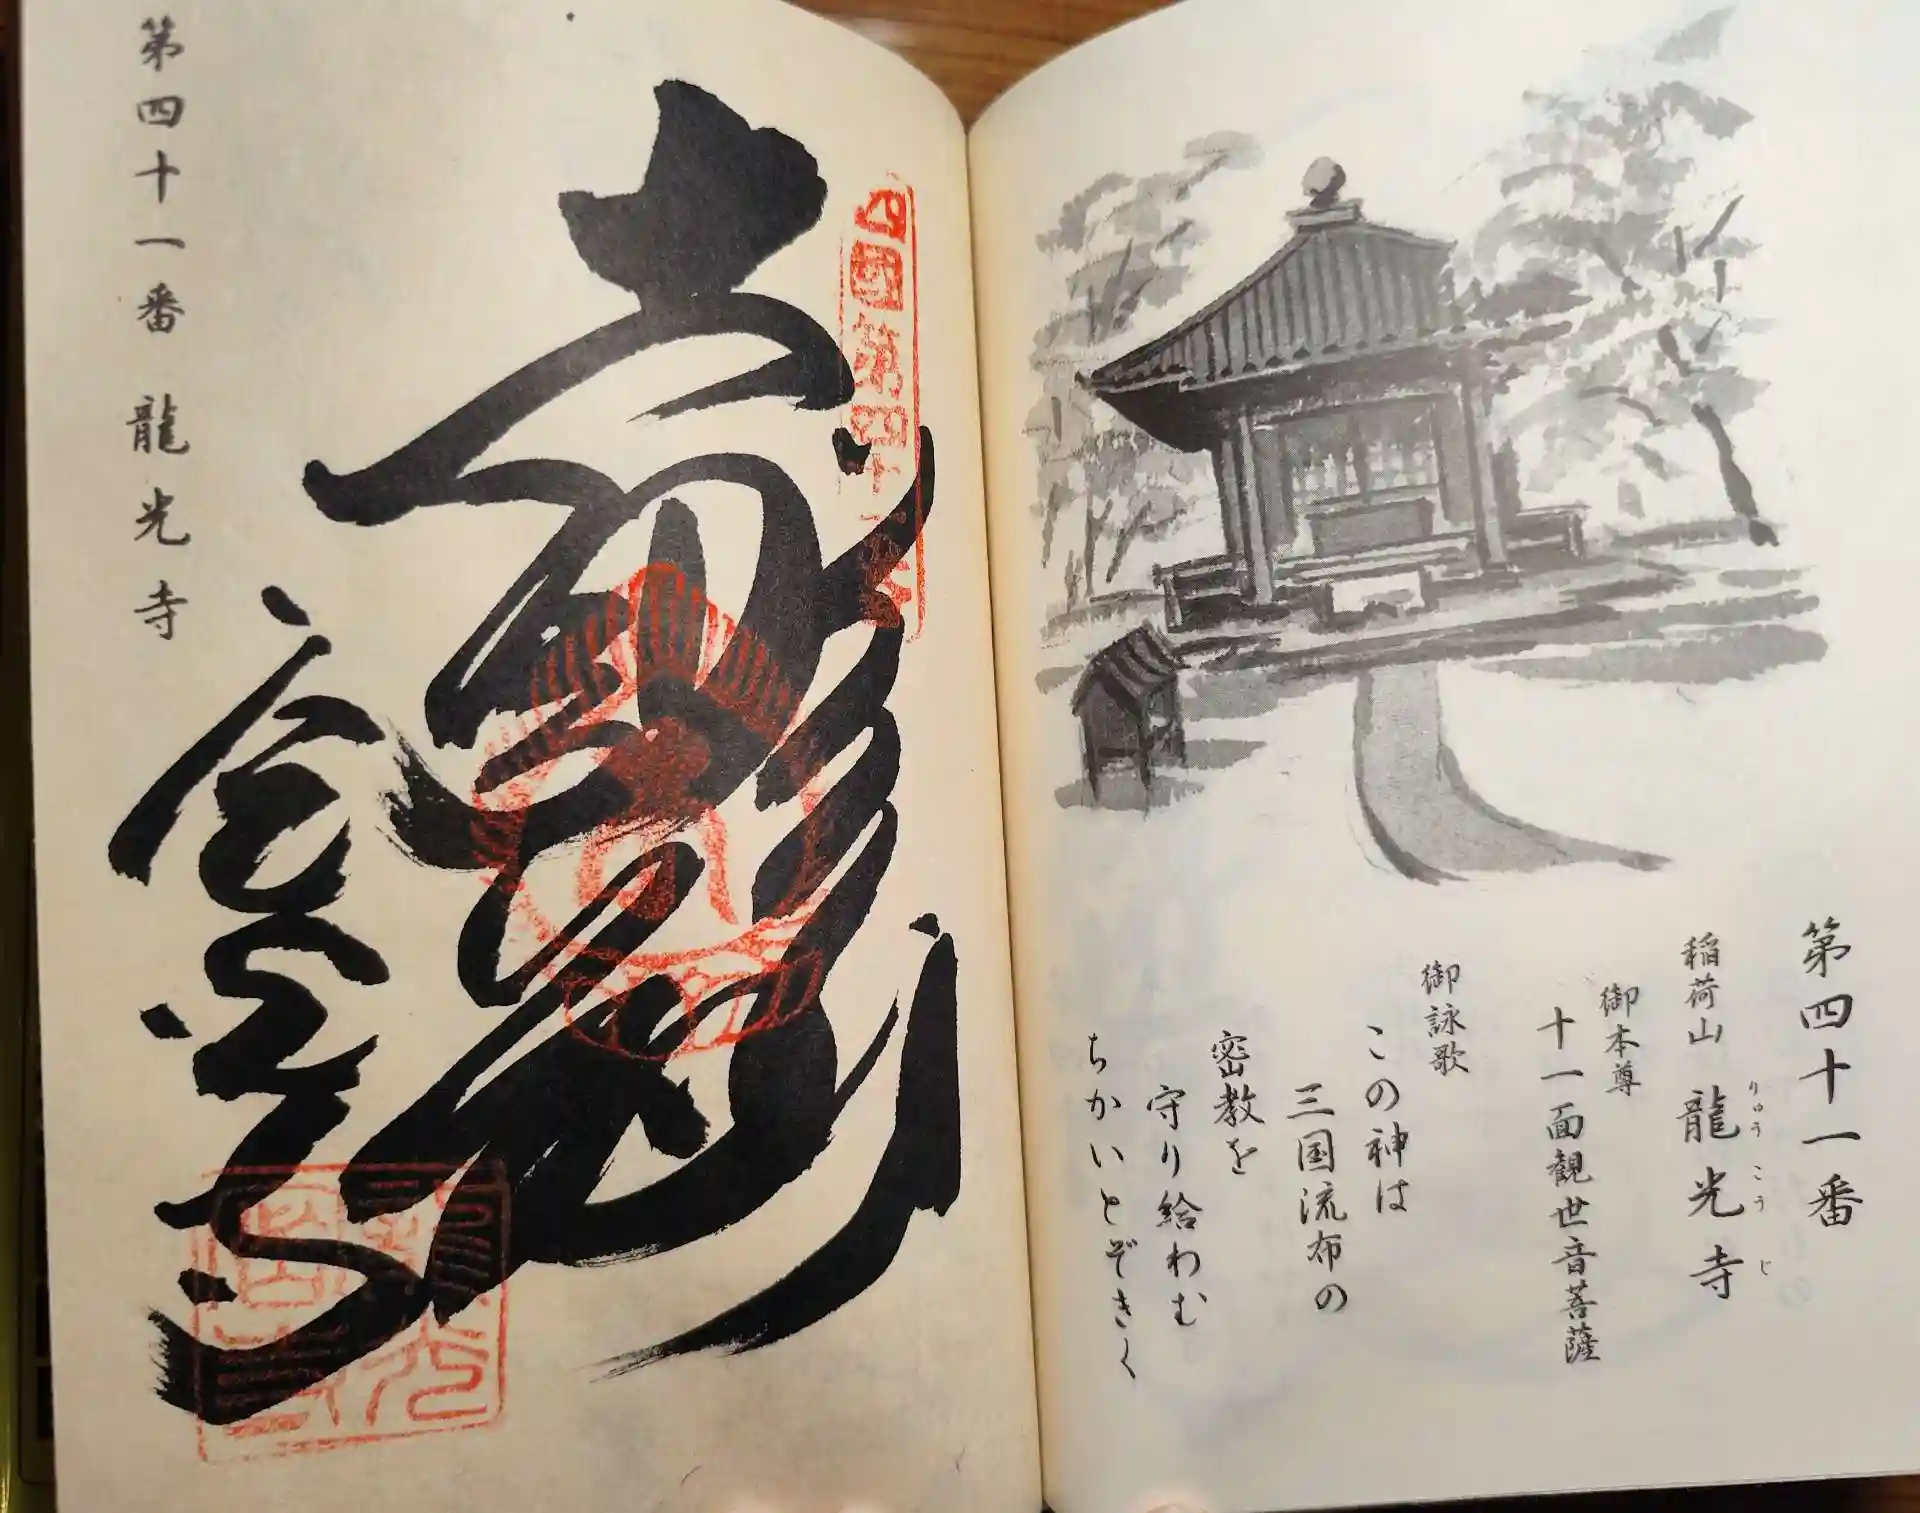 第四十一番
稲荷山 龍光寺
りゅうこうじ
御本尊
十一面観世音菩薩
御詠歌
この神は
三国流布の
密教を
守り給わむ
ちかいとぞきく
四國第四十一番
龍光寺印
第四十一番 龍光寺